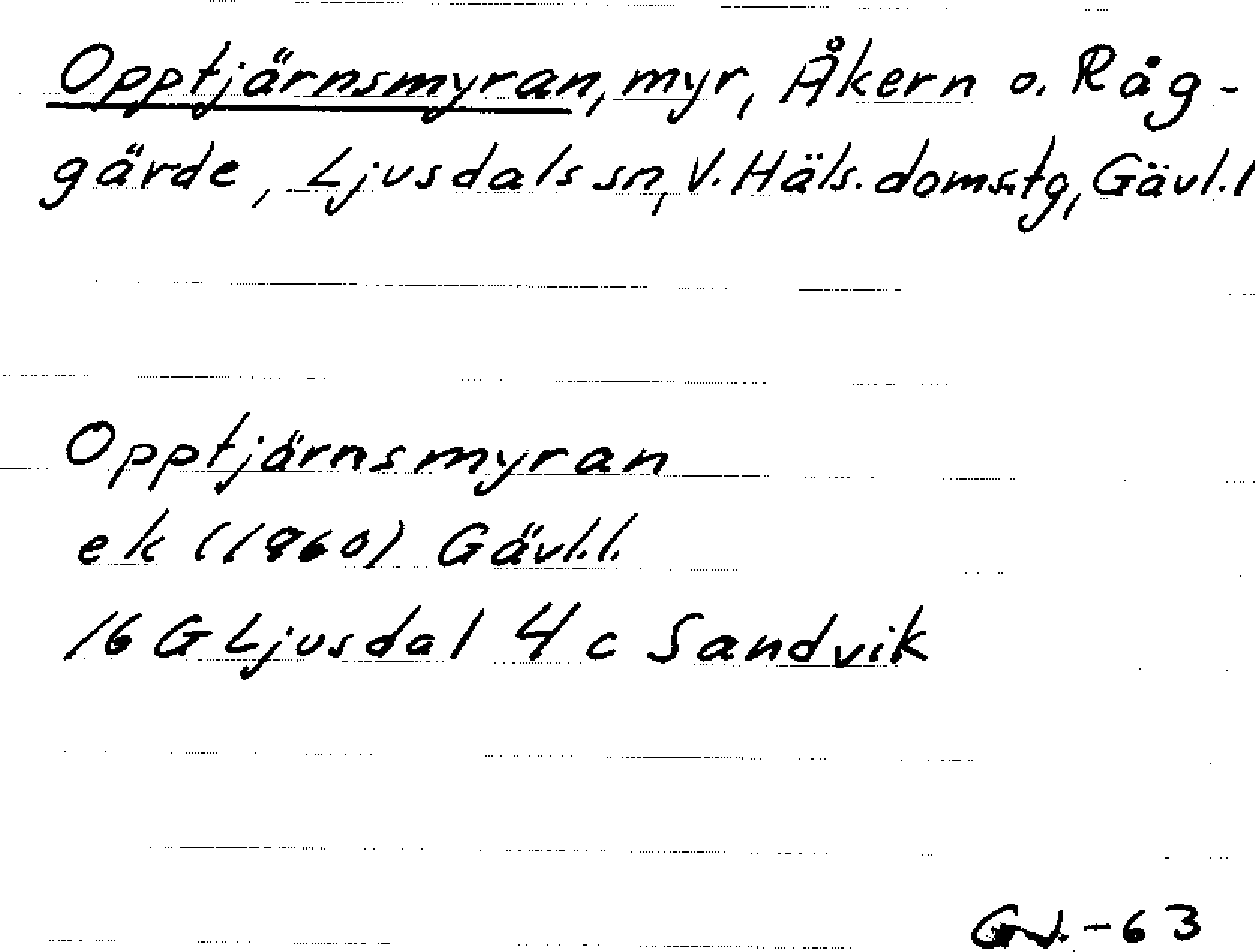 Opptjärnsmyran, myr, Åkern o. Råg-
gärde, Ljusdals sn, V. Häls. domstg, Gävl. l
Opptjärnsmyran
ek (1960) Gävl. l.
16 G Ljusdal 4 c Sandvik
-63